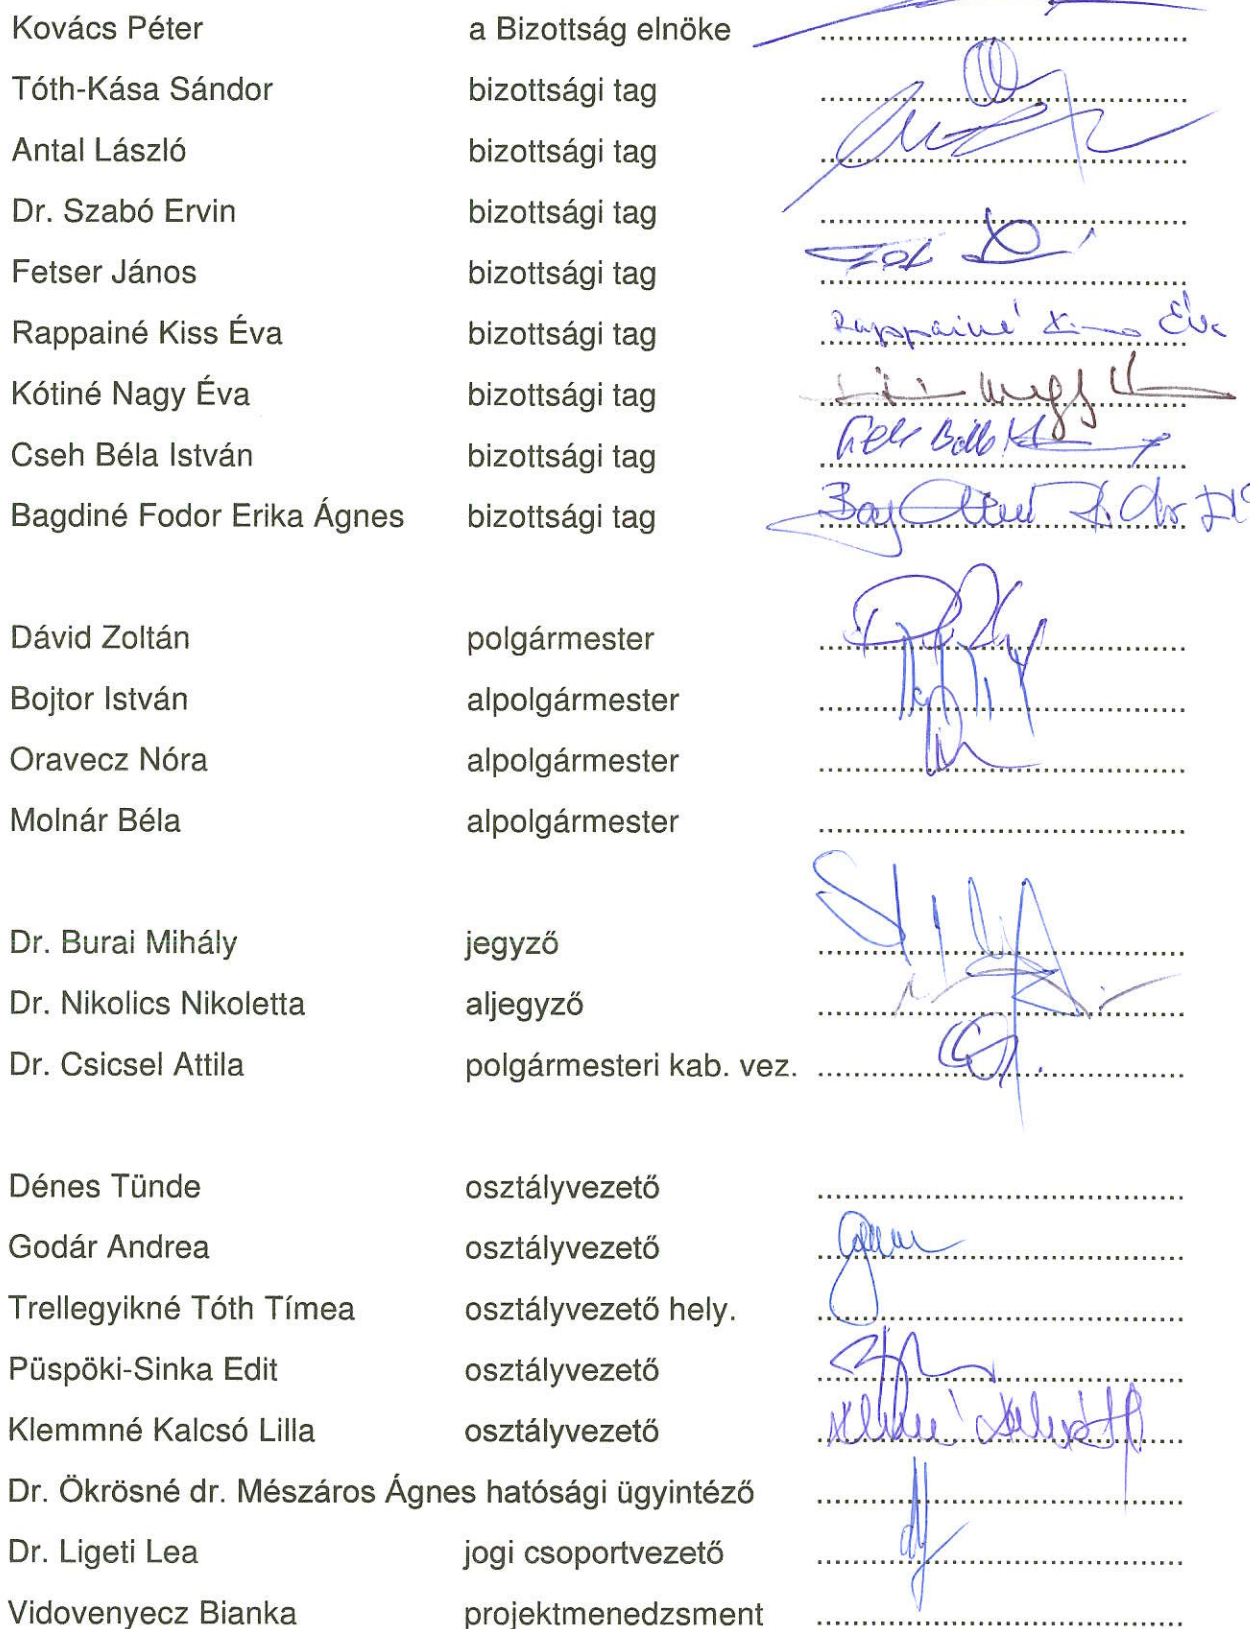 Kovács Péter a Bizottság elnöke ........................................
Tóth-Kása Sándor bizottsági tag ........................................
Antal László bizottsági tag ........................................
Dr. Szabó Ervin bizottsági tag ........................................
Fetser János bizottsági tag ........................................
Rappainé Kiss Éva bizottsági tag Rappainé Kiss Éva
Kótiné Nagy Éva bizottsági tag ........................................
Cseh Béla István bizottsági tag ........................................
Bagdiné Fodor Erika Ágnes bizottsági tag ........................................
Dávid Zoltán polgármester ........................................
Bojtor István alpolgármester ........................................
Oravecz Nóra alpolgármester ........................................
Molnár Béla alpolgármester ........................................
Dr. Burai Mihály jegyző ........................................
Dr. Nikolics Nikoletta aljegyző ........................................
Dr. Csicsel Attila polgármesteri kab. vez. ........................................
Dénes Tünde osztályvezető ........................................
Godár Andrea osztályvezető ........................................
Trellegyikné Tóth Tímea osztályvezető hely. ........................................
Püspöki-Sinka Edit osztályvezető ........................................
Klemmné Kalcsó Lilla osztályvezető ........................................
Dr. Ökrösné dr. Mészáros Ágnes hatósági ügyintéző ........................................
Dr. Ligeti Lea jogi csoportvezető ........................................
Vidovenyecz Bianka projektmenedzsment ........................................